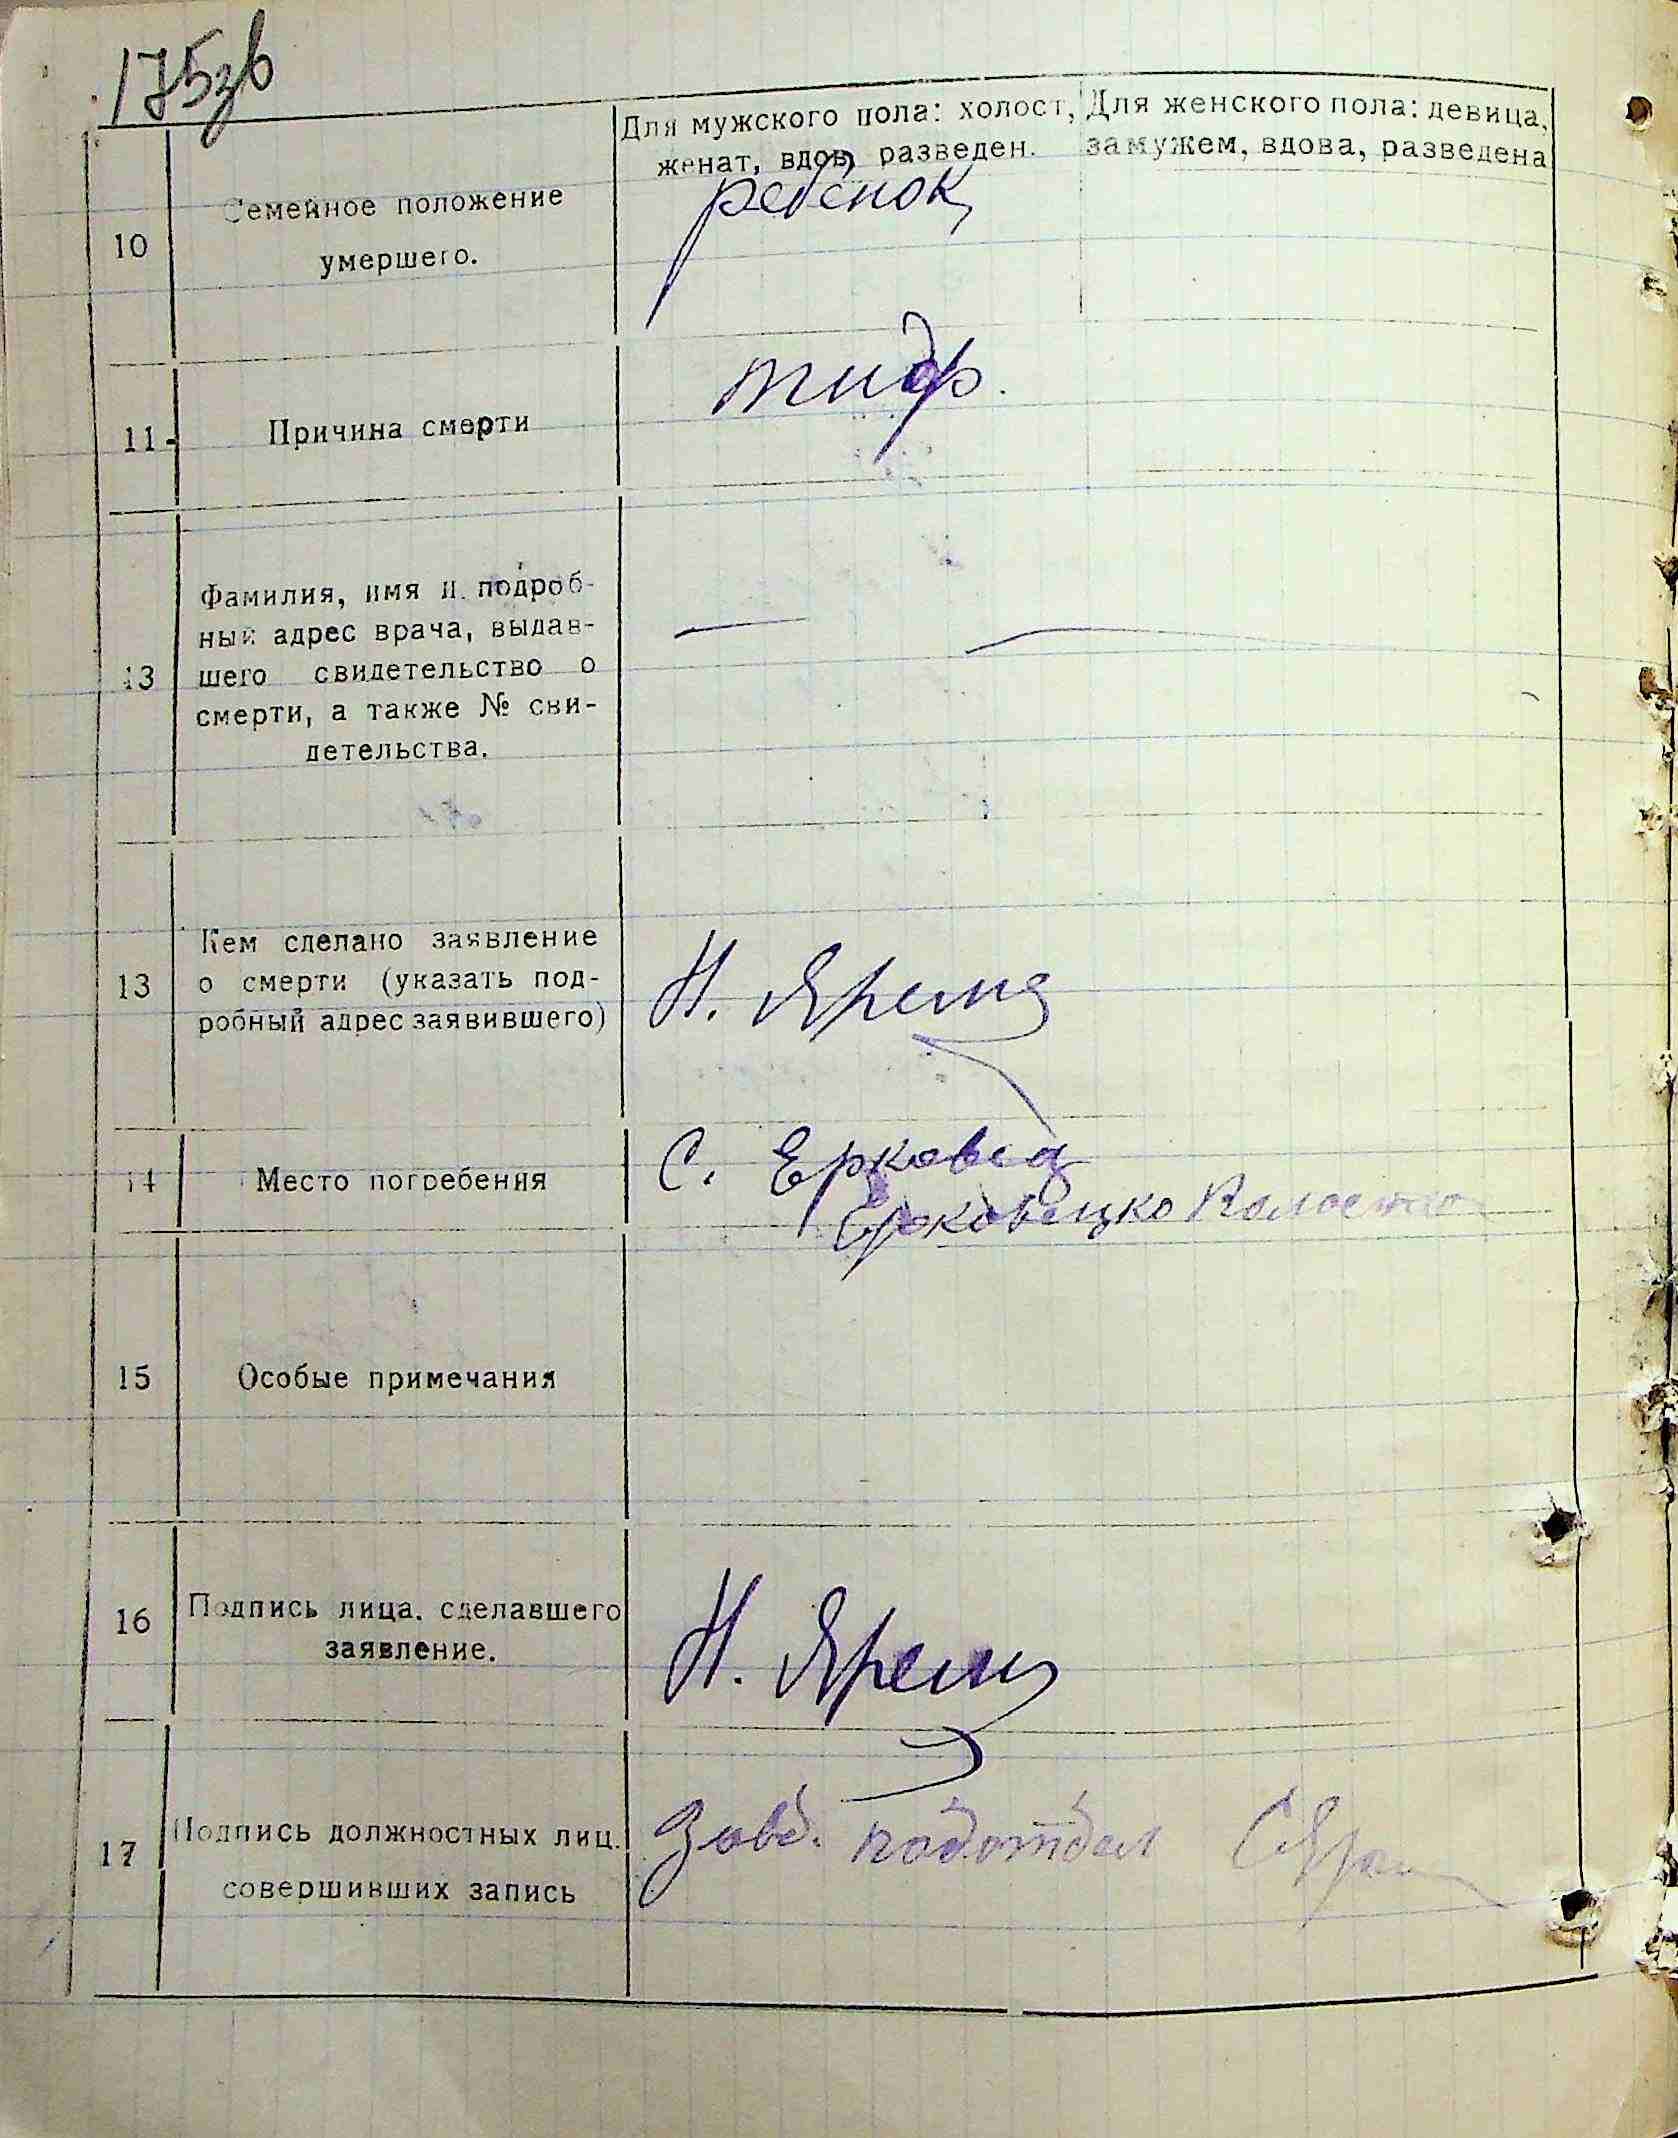 175зв
Для мужского пола: холост, женат, вдов, разведен.
Для женского пола: девица, замужем, вдова, разведена
10
Семейное положение
умершего.
ребенок
11
Причина смерти
тиф.
13
Фамилия, имя и подроб-
ный адрес врача, выдав-
шего свидетельство о
смерти, а также № сви-
детельства.
13
Кем сделано заявление
о смерти (указать под-
робный адрес заявившего)
Н. Ярема
14
Место погребения
С. Ерковец
Ерковецко Волости
15
Особые примечания
16
Подпись лица, сделавшего
заявление.
Н. Ярема
17
Подпись должностных лиц.
совершивших запись
Завд. подотдел